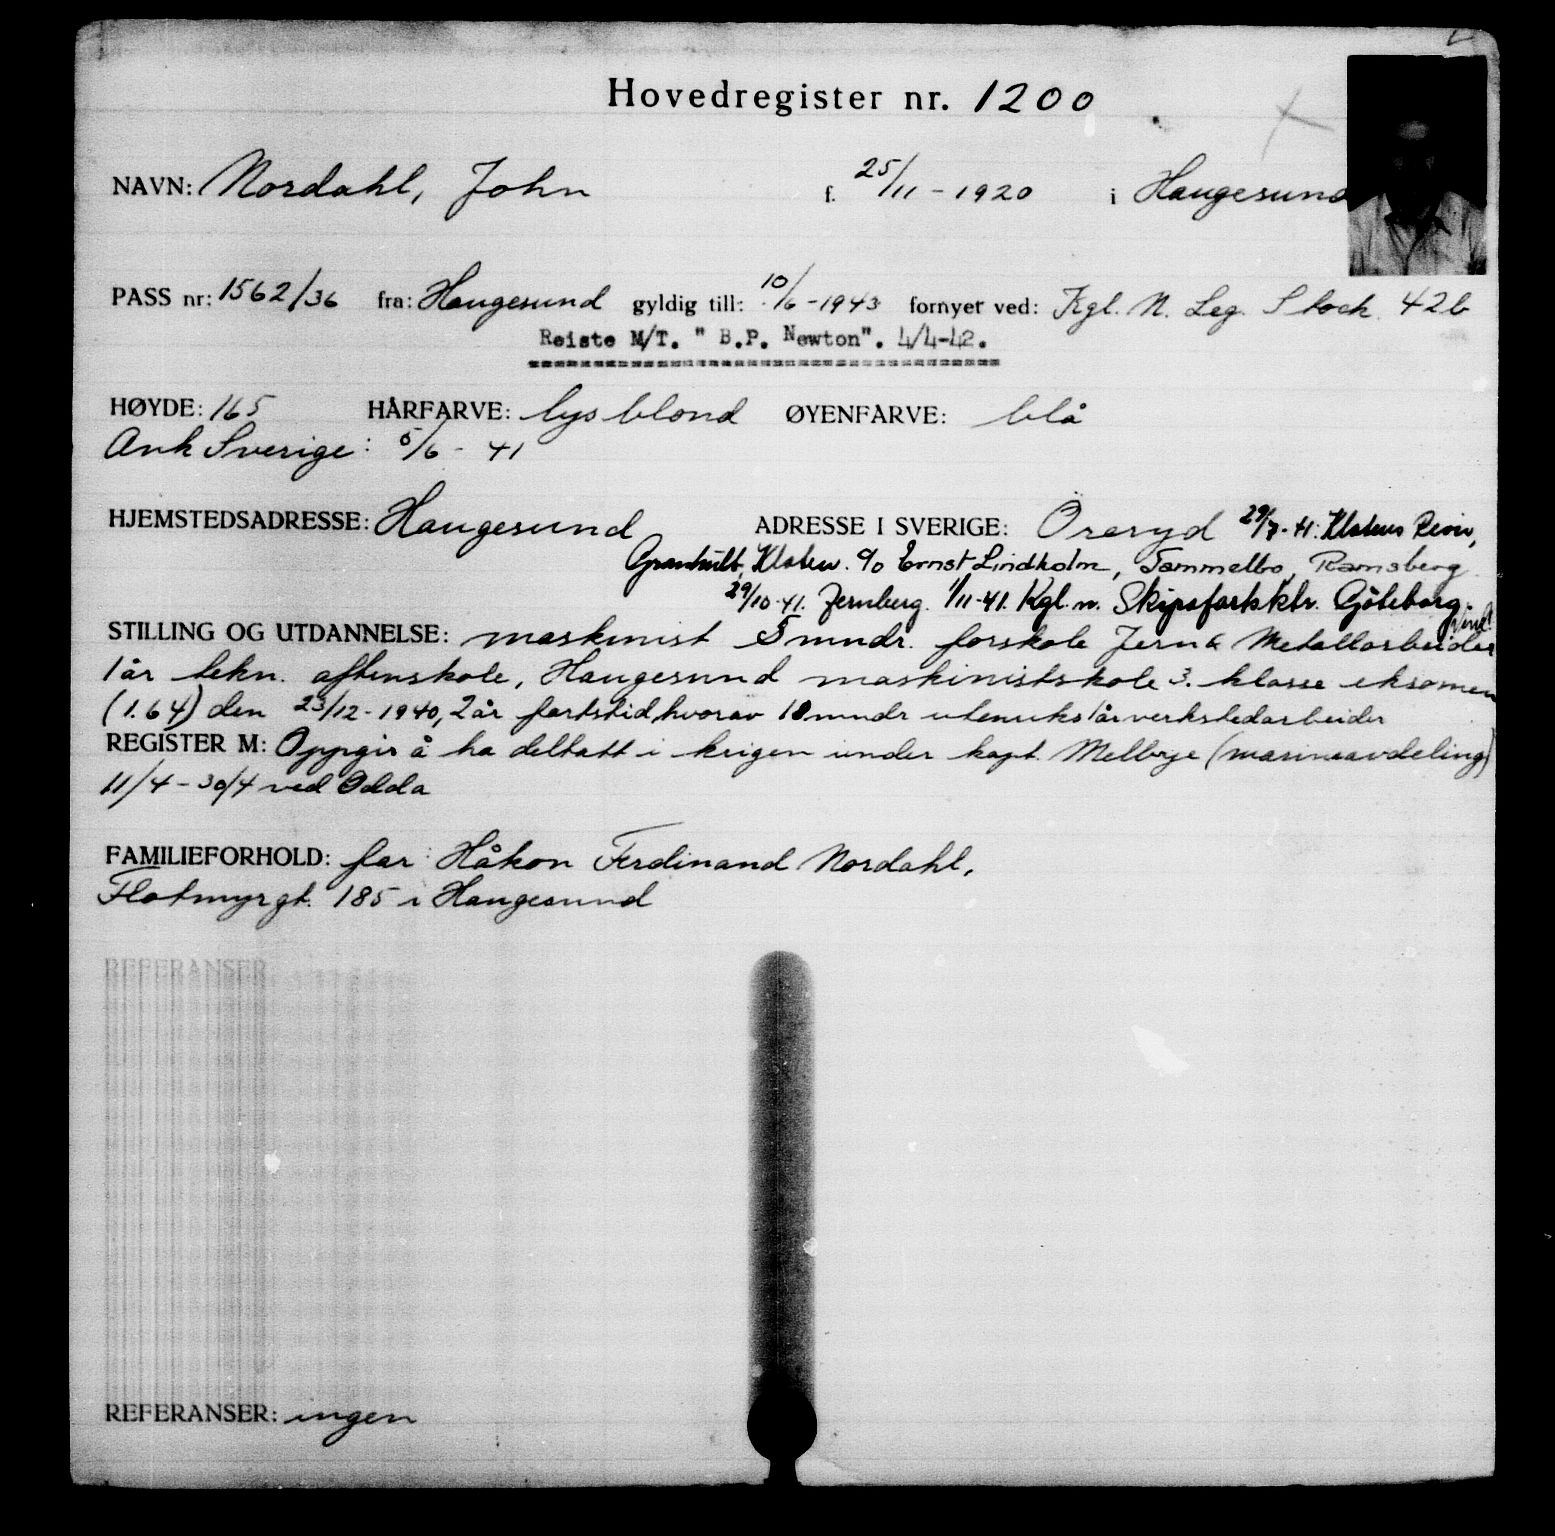 Hovedregister nr. 1200
NAVN: Nordahl, John f. 25/11 - 1920 i Haugesund
PASS nr: 1562/36 fra: Haugesund gyldig till: 10/6 - 1943 fornyet ved: Kgl. N. Leg. Stock. 42b
Reiste M/T. " B.P. Newton". 4/4-42.
HØYDE: 165 HÅRFARVE: lys blond ØYENFARVE: blå
Ank Sverige: 5/6 - 41
HJEMSTEDSADRESSE: Haugesund ADRESSE I SVERIGE: Öreryd 29/7-41: Klotens Revir,
Granhult, Kloten. c/o Ernst Lindholm, Sammelbo, Ramsberg.
29/10-41. Jernberg. 1/11-41. Kgl. n. Skipsfartsktr. Göteborg.
STILLING OG UTDANNELSE: maskinist 5 mndr. forskole Jern & Metallarbeider
1 år tekn. aftenskole, Haugesund maskinistskole 3. klasse eksamen
(1.64) den 23/12-1940, 2 år fartstid hvorav 10 mndr utenriks 1 år verkstedarbeider
REGISTER M: Oppgir å ha deltatt i krigen under kapt. Melbye (marineavdeling)
11/4 - 30/4 ved Odda
FAMILIEFORHOLD: far: Håkon Ferdinand Nordahl,
Flotmyrgt. 185 i Haugesund
REFERANSER
REFERANSER: ingen